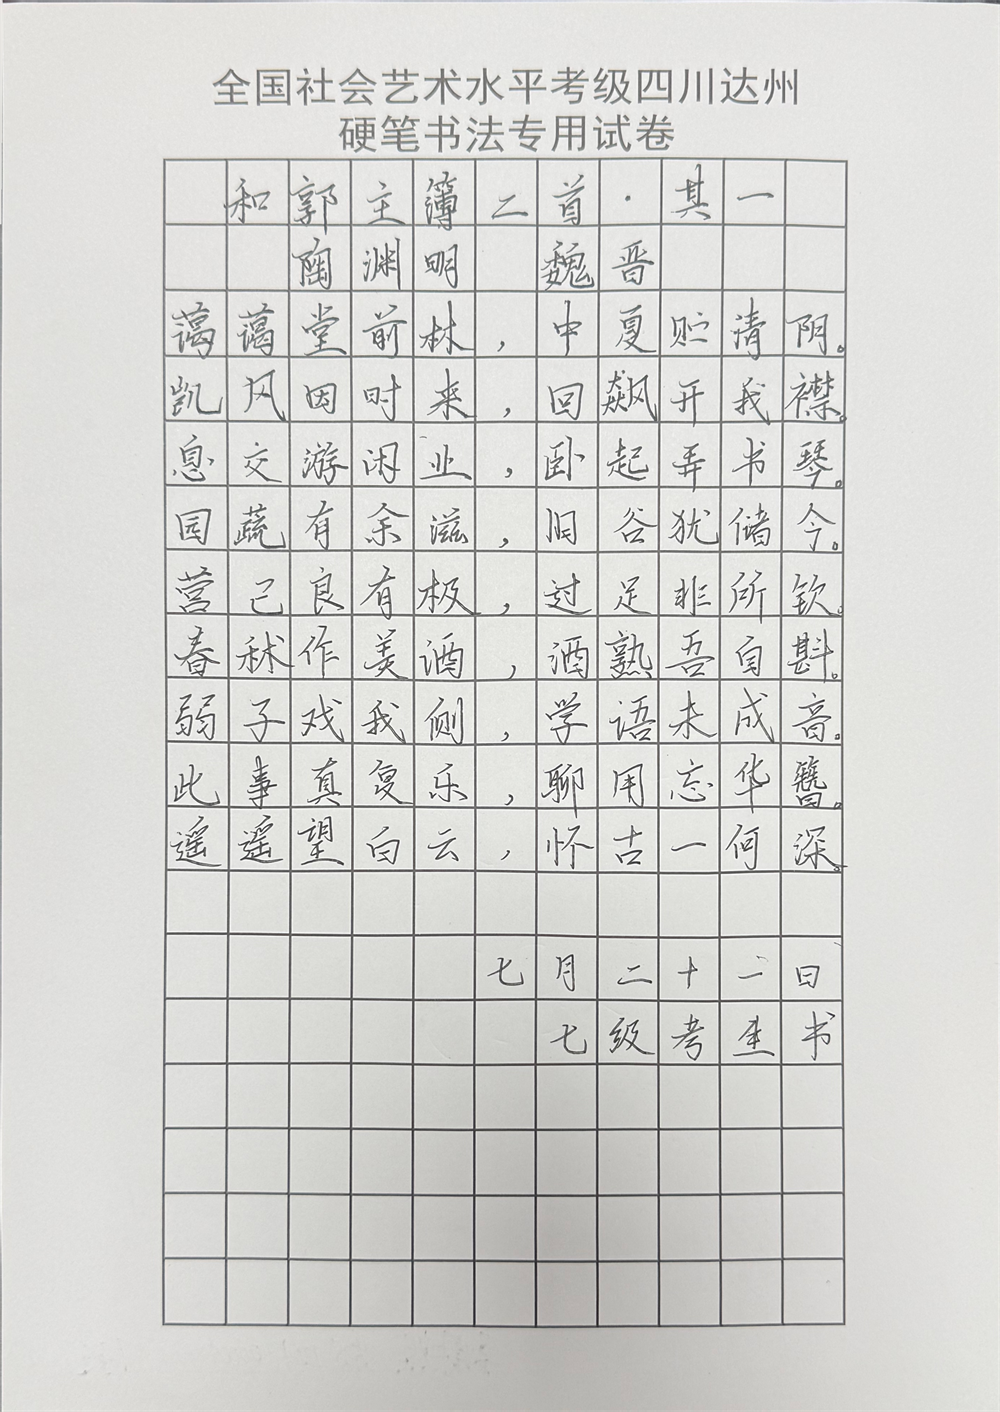 全国社会艺术水平考级四川达州
硬笔书法专用试卷
和郭主簿二首·其一
陶渊明 魏晋
蔼蔼堂前林，中夏贮清阴。
凯风因时来，回飙开我襟。
息交游闲业，卧起弄书琴。
园蔬有余滋，旧谷犹储今。
营己良有极，过足非所钦。
舂秫作美酒，酒熟吾自斟。
弱子戏我侧，学语未成音。
此事真复乐，聊用忘华簪。
遥遥望白云，怀古一何深。
七月二十一日
七级考生书